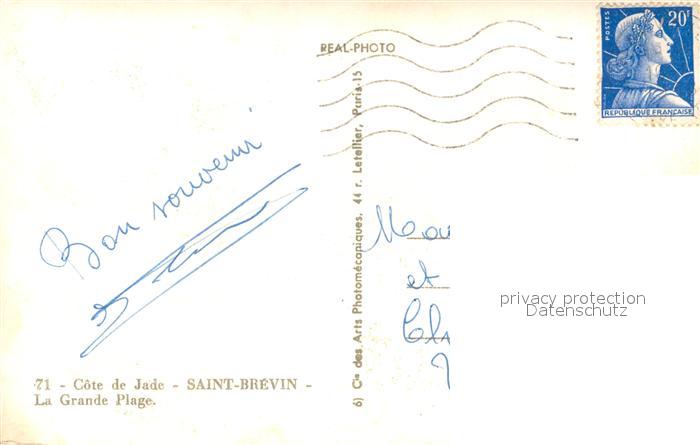 REAL-PHOTO
POSTES
20F
REPUBLIQUE FRANÇAISE
Bon souvenir
et
privacy protection
Datenschutz
6) Cie des Arts Photomécaniques, 44 r. Letellier, Paris-15
71 - Côte de Jade - SAINT-BRÉVIN -
La Grande Plage.